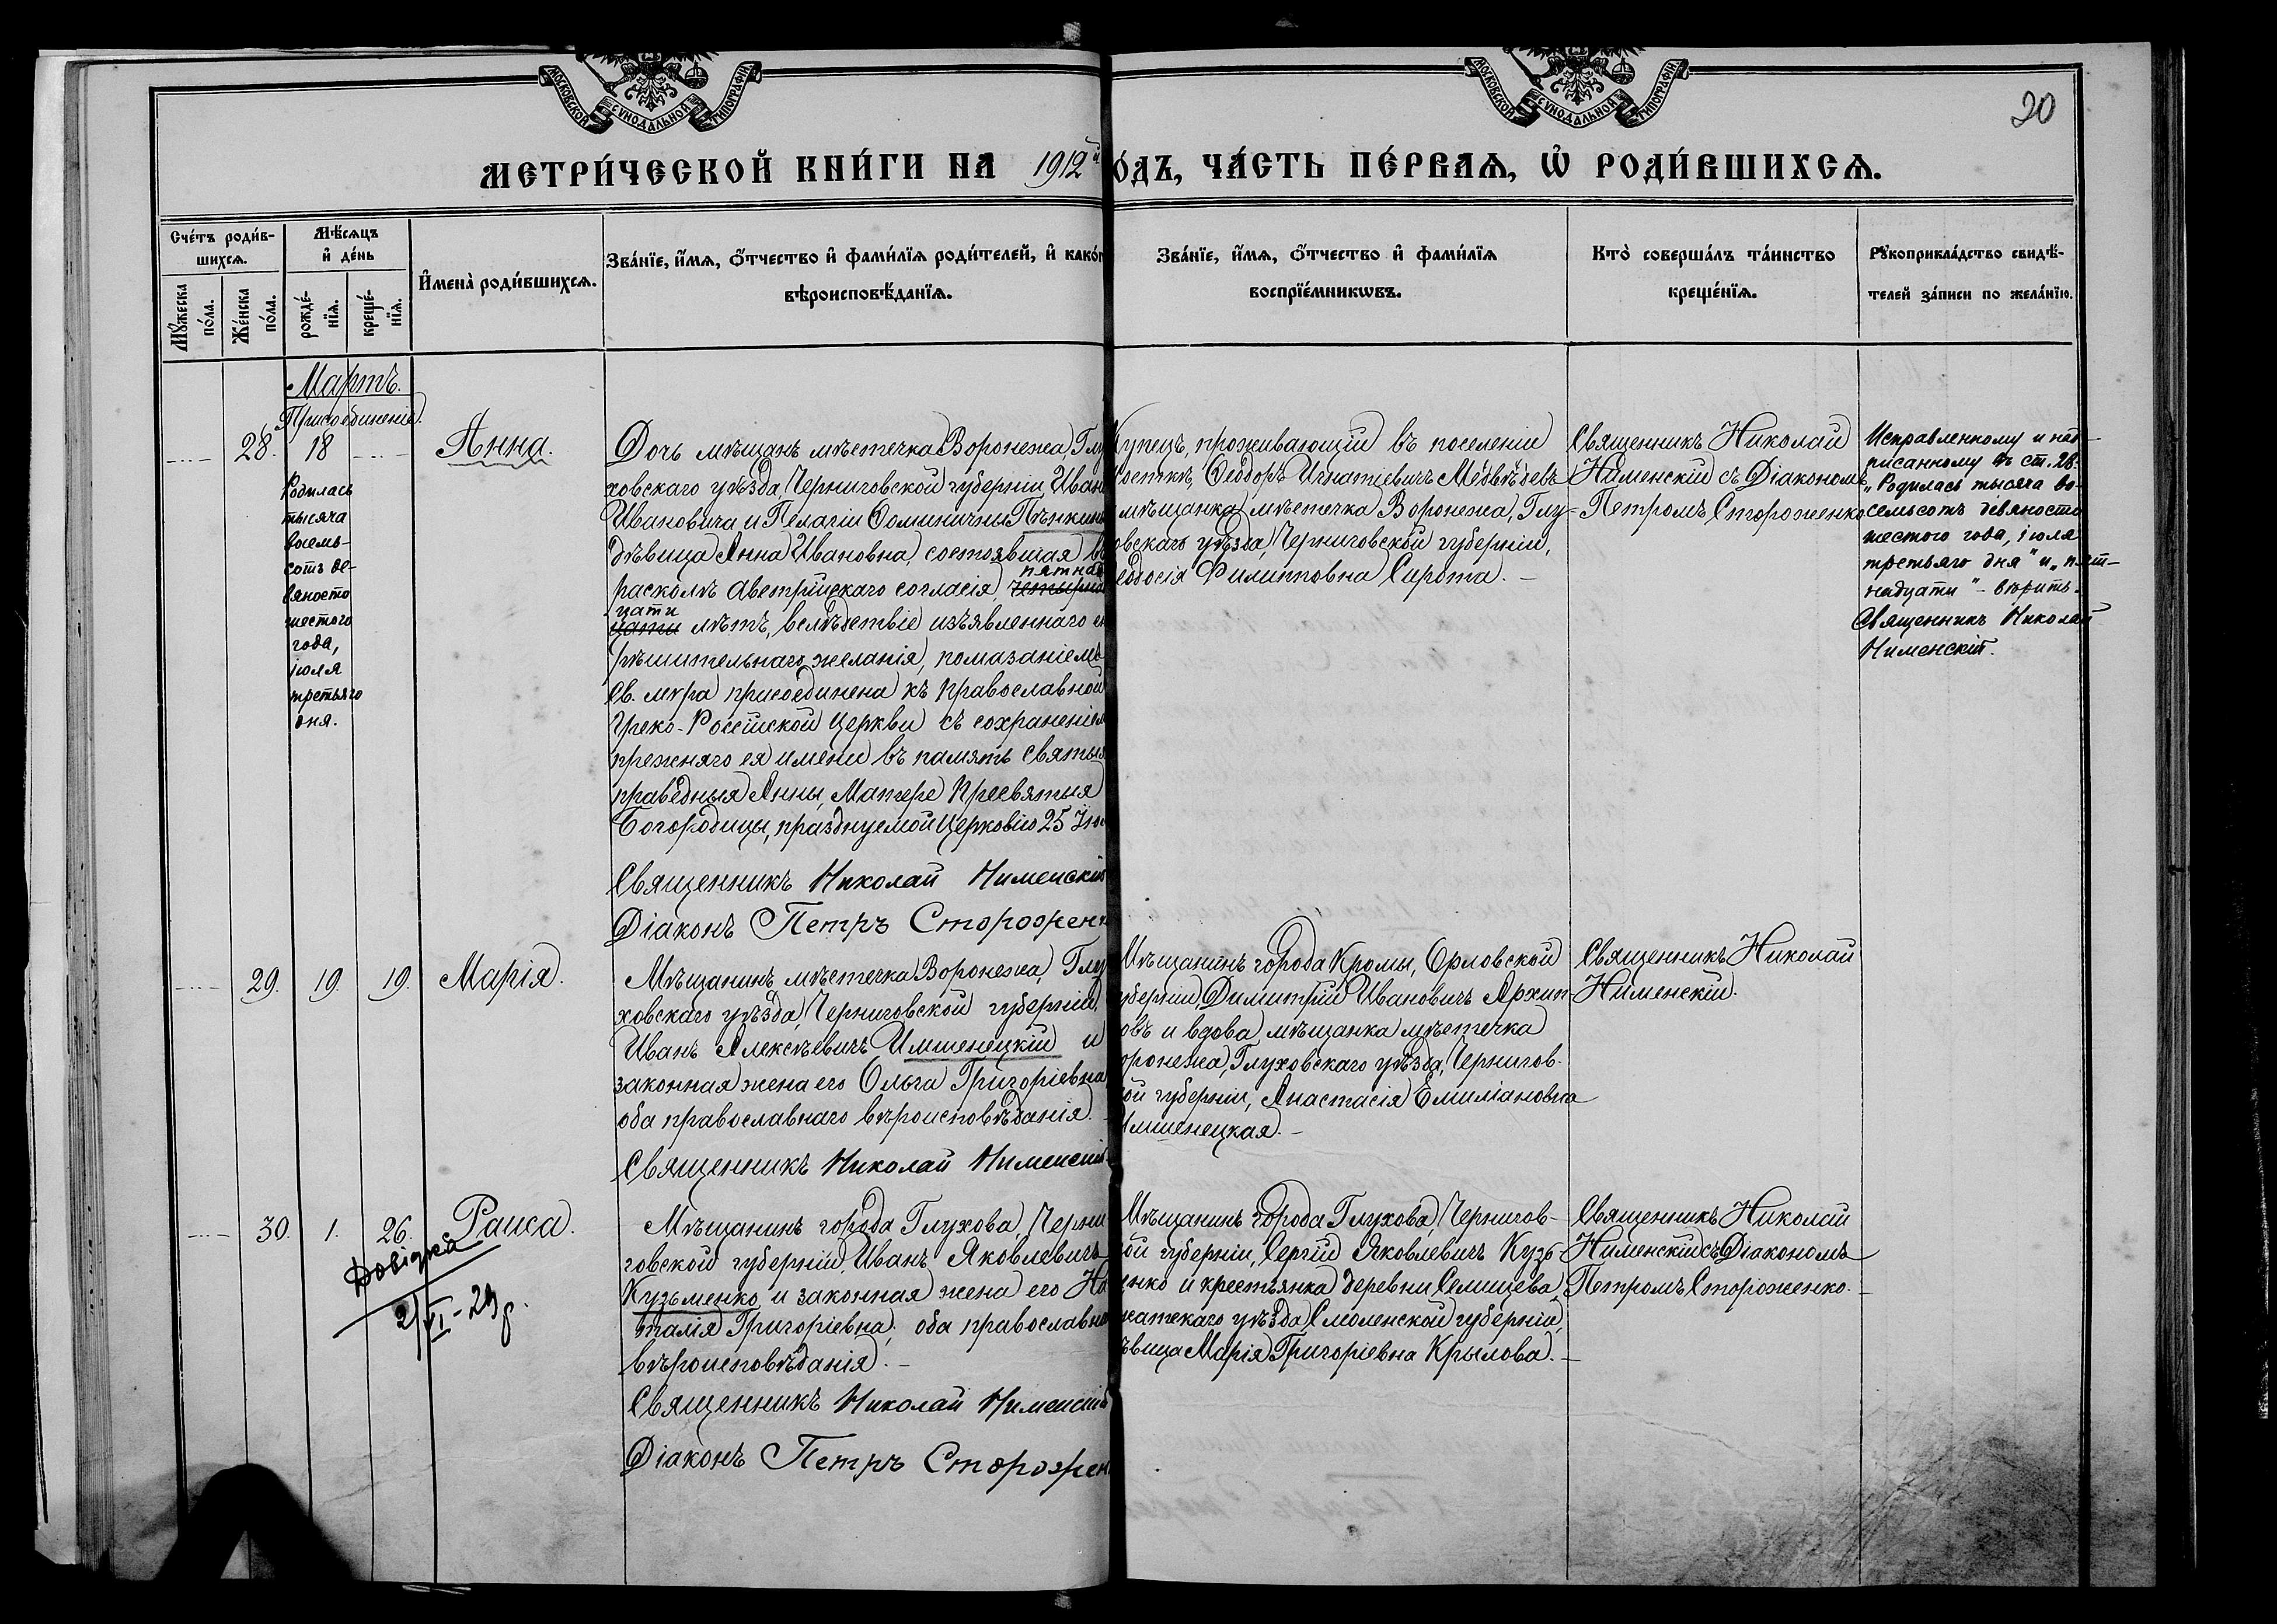 МОСКОВСКОЙ СѴНОДАЛЬНОЙ ТИПОГРАФІИ
МОСКОВСКОЙ СѴНОДАЛЬНОЙ ТИПОГРАФІИ
20
МЕТРИ́ЧЕСКОЙ КНИ́ГИ НА 1912й
О́ДЪ, ЧА́СТЬ ПЕ́РВАѦ, Ѡ҆ РОДИ́ВШИХСѦ.
Сче́тъ роди́в-
шихсѧ.
Мꙋ́жеска по́ла.
Же́нска по́ла.
Мѣ́сѧцъ
и҆ де́нь
рожде́-
нїѧ.
креще́-
нїѧ.
И҆мена̀ роди́вшихсѧ.
Зва́нїе, и҆́мѧ, ѻ҆́тчество и҆ фами́лїѧ роди́телей, и҆ како́г
вѣроисповѣ́данїѧ.
Зва́нїе, и҆́мѧ, ѻ҆́тчество и҆ фами́лїѧ
воспрїе́мникѡвъ.
Кто̀ соверша́лъ та́инство
креще́нїѧ.
Рꙋкоприкла́дство свидѣ́-
телей за́писи по жела́нїю.
Мартъ.
Присоединеніе.
28. 18 Анна.
Родилась
тысяча
восемь-
сотъ де-
вяносто
шестого
года,
іюля
третьяго
дня.
Дочь мѣщанъ мѣстечка Воронежа, Глу
ховскаго уѣзда, Черниговской губерніи Иван
Ивановича и Пелагіи Ѳоминичны Пѣнкины
дѣвица Анна Ивановна, состоявшая въ
пятнад
расколѣ австрійскаго согласія, четырна
цати
цати лѣтъ, вслѣдствіе изъявленнаго ею
рѣшительнаго желанія, помазаніемъ
Св. мѵра присоединена къ православной
Греко-Россійской Церкви съ сохраненіем
прежняго ея имени въ память святыя
праведныя Анны, Матере Пресвятыя
Богородицы, празднуемой Церковію 25 Іюл
Священникъ Николай Нименскій
Діаконъ Петръ Сторожен
Купецъ, проживающій въ поселеніи
Ѳеодоръ Игнатіевичъ Медвѣдевъ
мѣщанка мѣстечка Воронежа, Глу-
овскаго уѣзда, Черниговской губерніи,
еодосія Филипповна Сирота. –
Священникъ Николай
Нименскій съ Діакономъ
Петромъ Стороженко
Исправленному и над-
писанному въ ст. 28:
„Родилась тысяча во-
семьсотъ девяносто
шестого года, іюля
третьяго дня" и „пят-
надцати" – вѣрить.
Священникъ Николай
Нименскій.
29. 19. 19. Марія.
Мѣщанинъ мѣстечка Воронежа, Глу
ховскаго уѣзда, Черниговской губерніи,
Иванъ Алексѣевичъ Имшенецкій и
законная жена его Ольга Григоріевна
оба православнаго вѣроисповѣданія.
Священникъ Николай Нименскій
Мѣщанинъ города Кромы, Орловской
уберніи, Димитрій Ивановичъ Архип-
овъ и вдова, мѣщанка мѣстечка
оронежа, Глуховскаго уѣзда, Чернигов-
ой губерніи, Анастасія Емиліановна
Имшенецкая. –
Священникъ Николай
Нименскій.
30. 1. 26. Раиса.
Довідка
2/VI-29р.
Мѣщанинъ города Глухова, Черни
говской губерніи, Иванъ Яковлевичъ
Кузьменко и законная жена его На
талія Григоріевна; оба православна
вѣроисповѣданія. –
Священникъ Николай Нименскій
Діаконъ Петръ Сторожен
Мѣщанинъ города Глухова, Чернигов-
ой губерніи, Сергій Яковлевичъ Кузь-
енко и крестьянка деревни Селищева,
жатскаго уѣзда Смоленской губерніи,
ѣвица Марія Григоріевна Крылова. –
Священникъ Николай
Нименскій съ Діакономъ
Петромъ Стороженко.